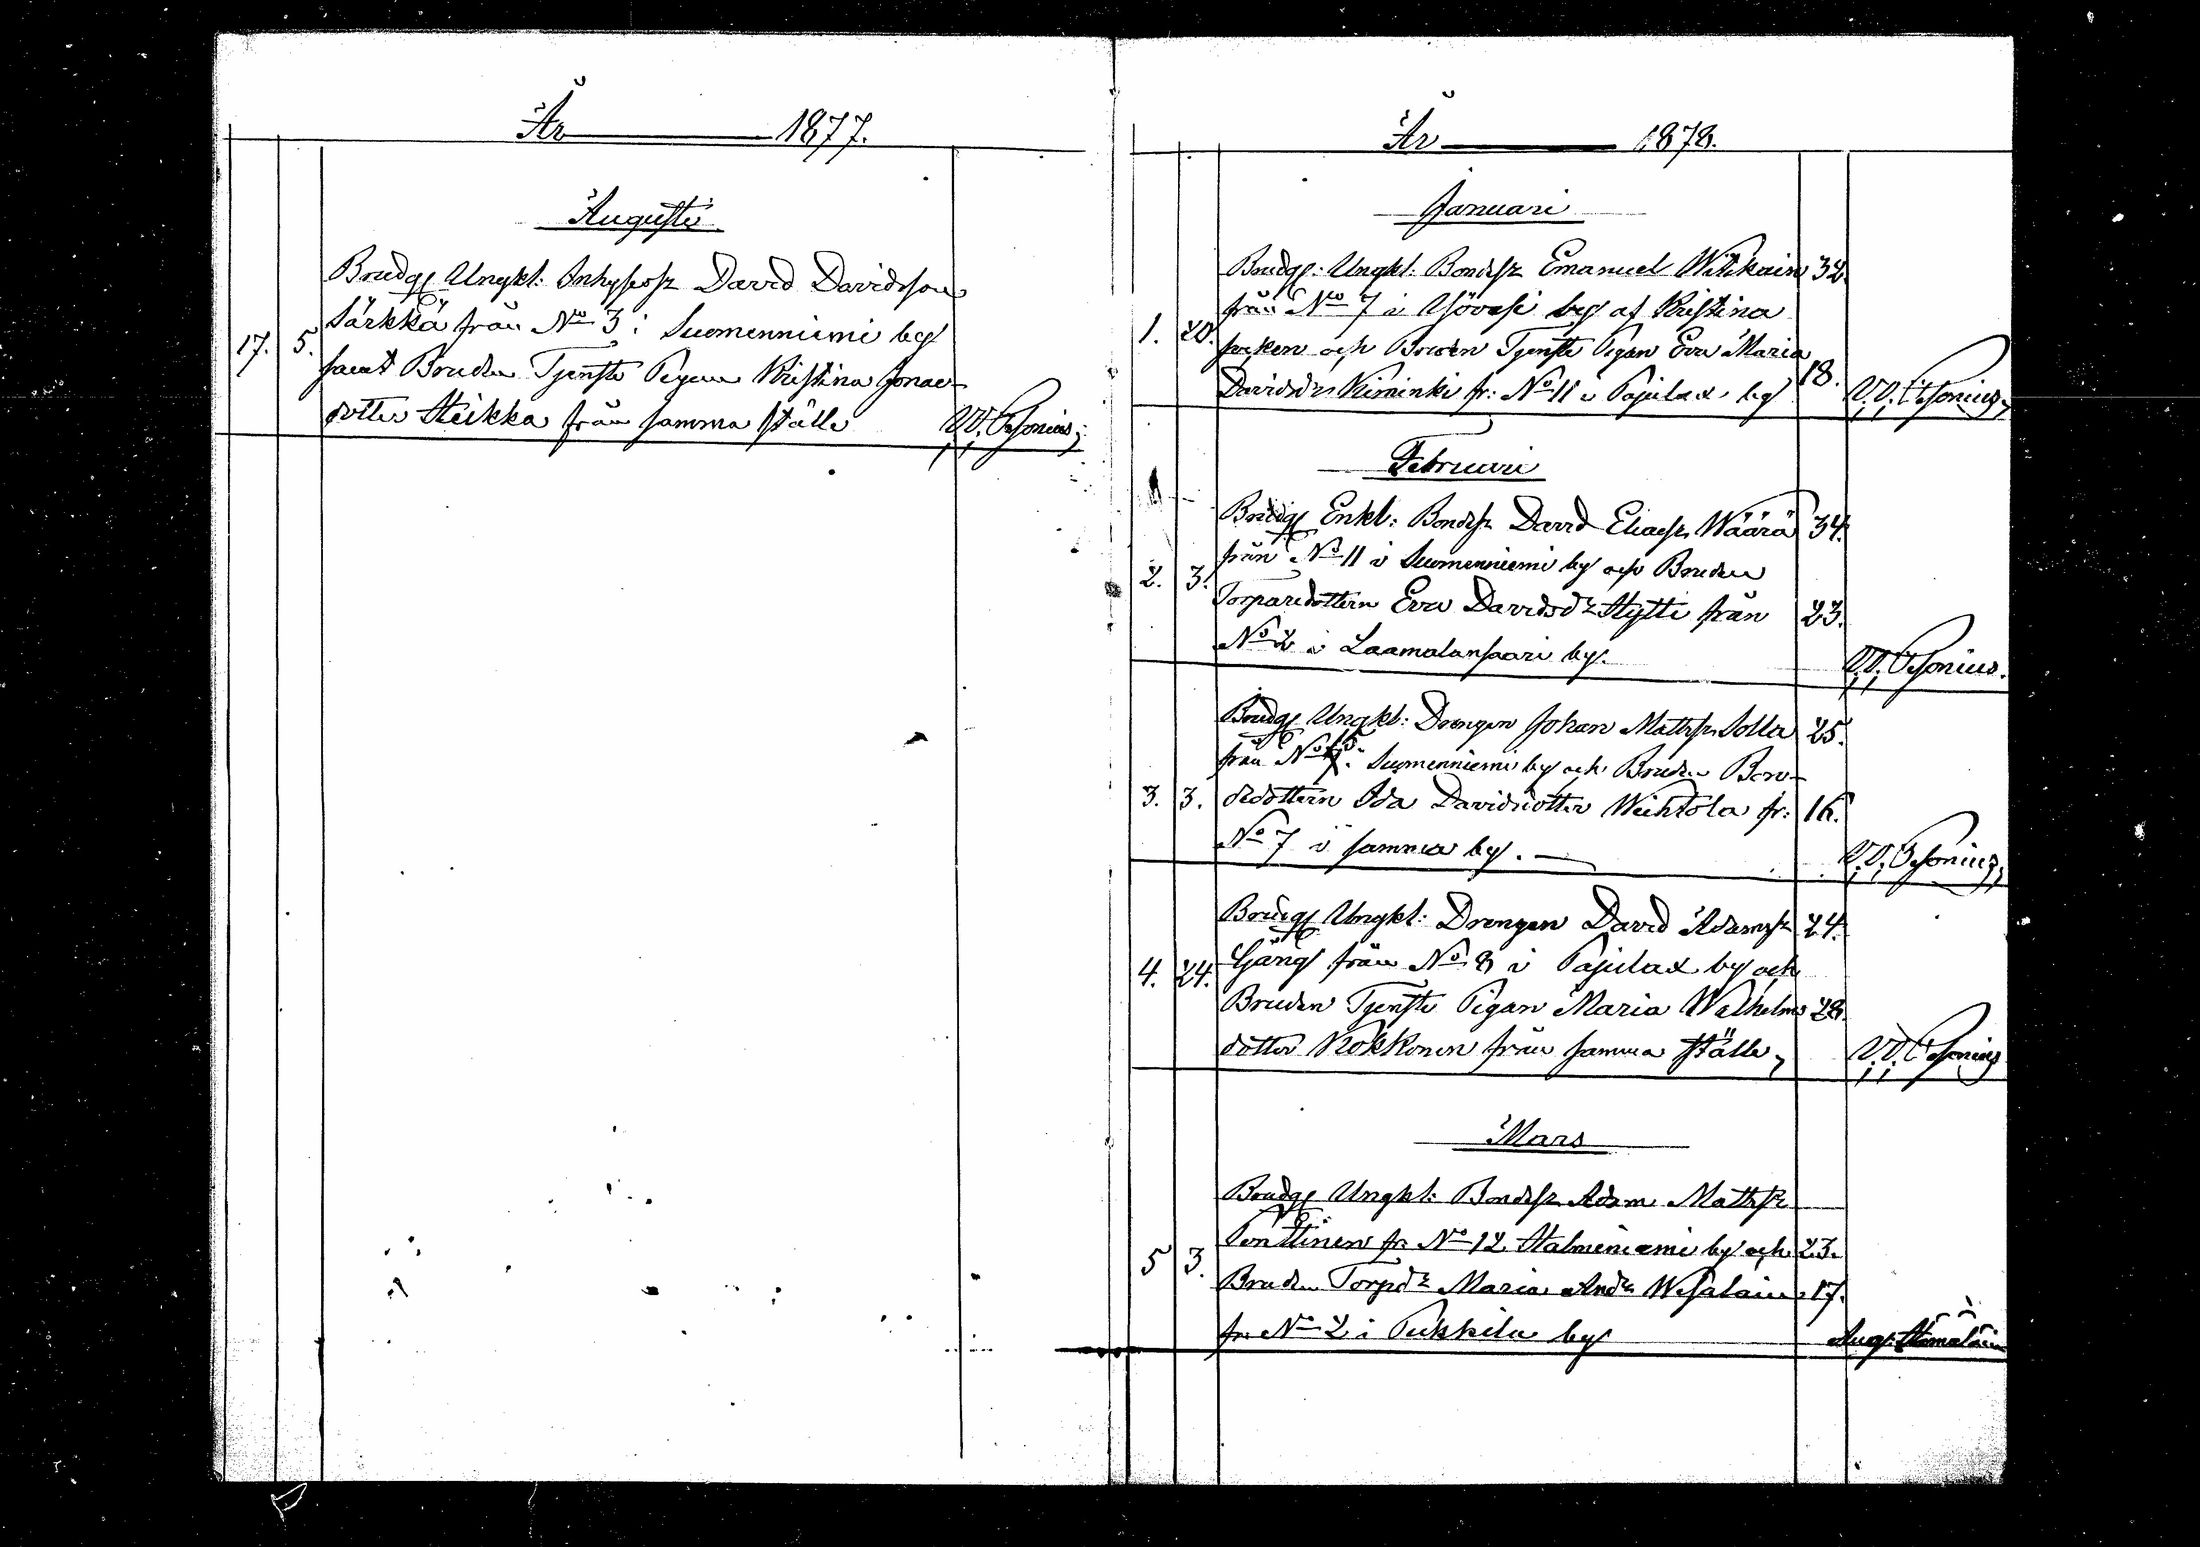 År 1877.
Augusti
Brudg Ungkl: Inhysess: David Davidsson
Särkkä från No 3 i Suomenniemi by
17. 5. samt Bruden Tjenste Pigan Kristina Jonae
dotter Heikka från samma ställe
År 1878.
Januari
Brudg: Ungkl: Bondes: Emanuel 32
från No 7 i by af Kristina
1. 20. socken och Bruden Tjenste Pigan Eva Maria
Davidsdr Kiminki fr: No 11 i Pajulax by 18.
Februari
Brudg Enkl: Bondes: David Eliass: Wäärä 34.
från No 11 i Suomenniemi by och Bruden
2. 3. Torparedottern Eva Davidsdr Hytti från 23.
No 2 i Laamalansaari by.
Brudg Ungkl: Drengen Johan Mattss: Solla 25.
från No i Suomenniemi by och Bruden Bon-
3. 3. dedottern Ida Davidsdotter Weihtola fr: 16.
No 7 i samma by.
Brudg Ungkl: Drengen David Adamss: 24.
4. 24. Gäng från No 8 i Pajulax by och
Bruden Tjenste Pigan Maria Wilhelms 28.
dotter Kokkonen från samma ställe,
Mars
Brudg Ungkl: Bondes: Adam Mattss:
5 3. Penttinen fr: No 12 Halmeniemi by och 23.
Bruden Torpdr Maria Andr Wesalain 17.
fr: No 2 i Pukkila by
Aug: